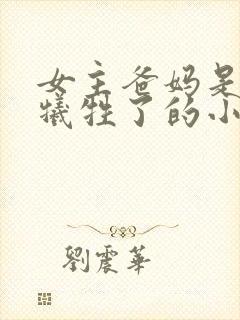 女主爸妈是
牺牲了的小
劉震華